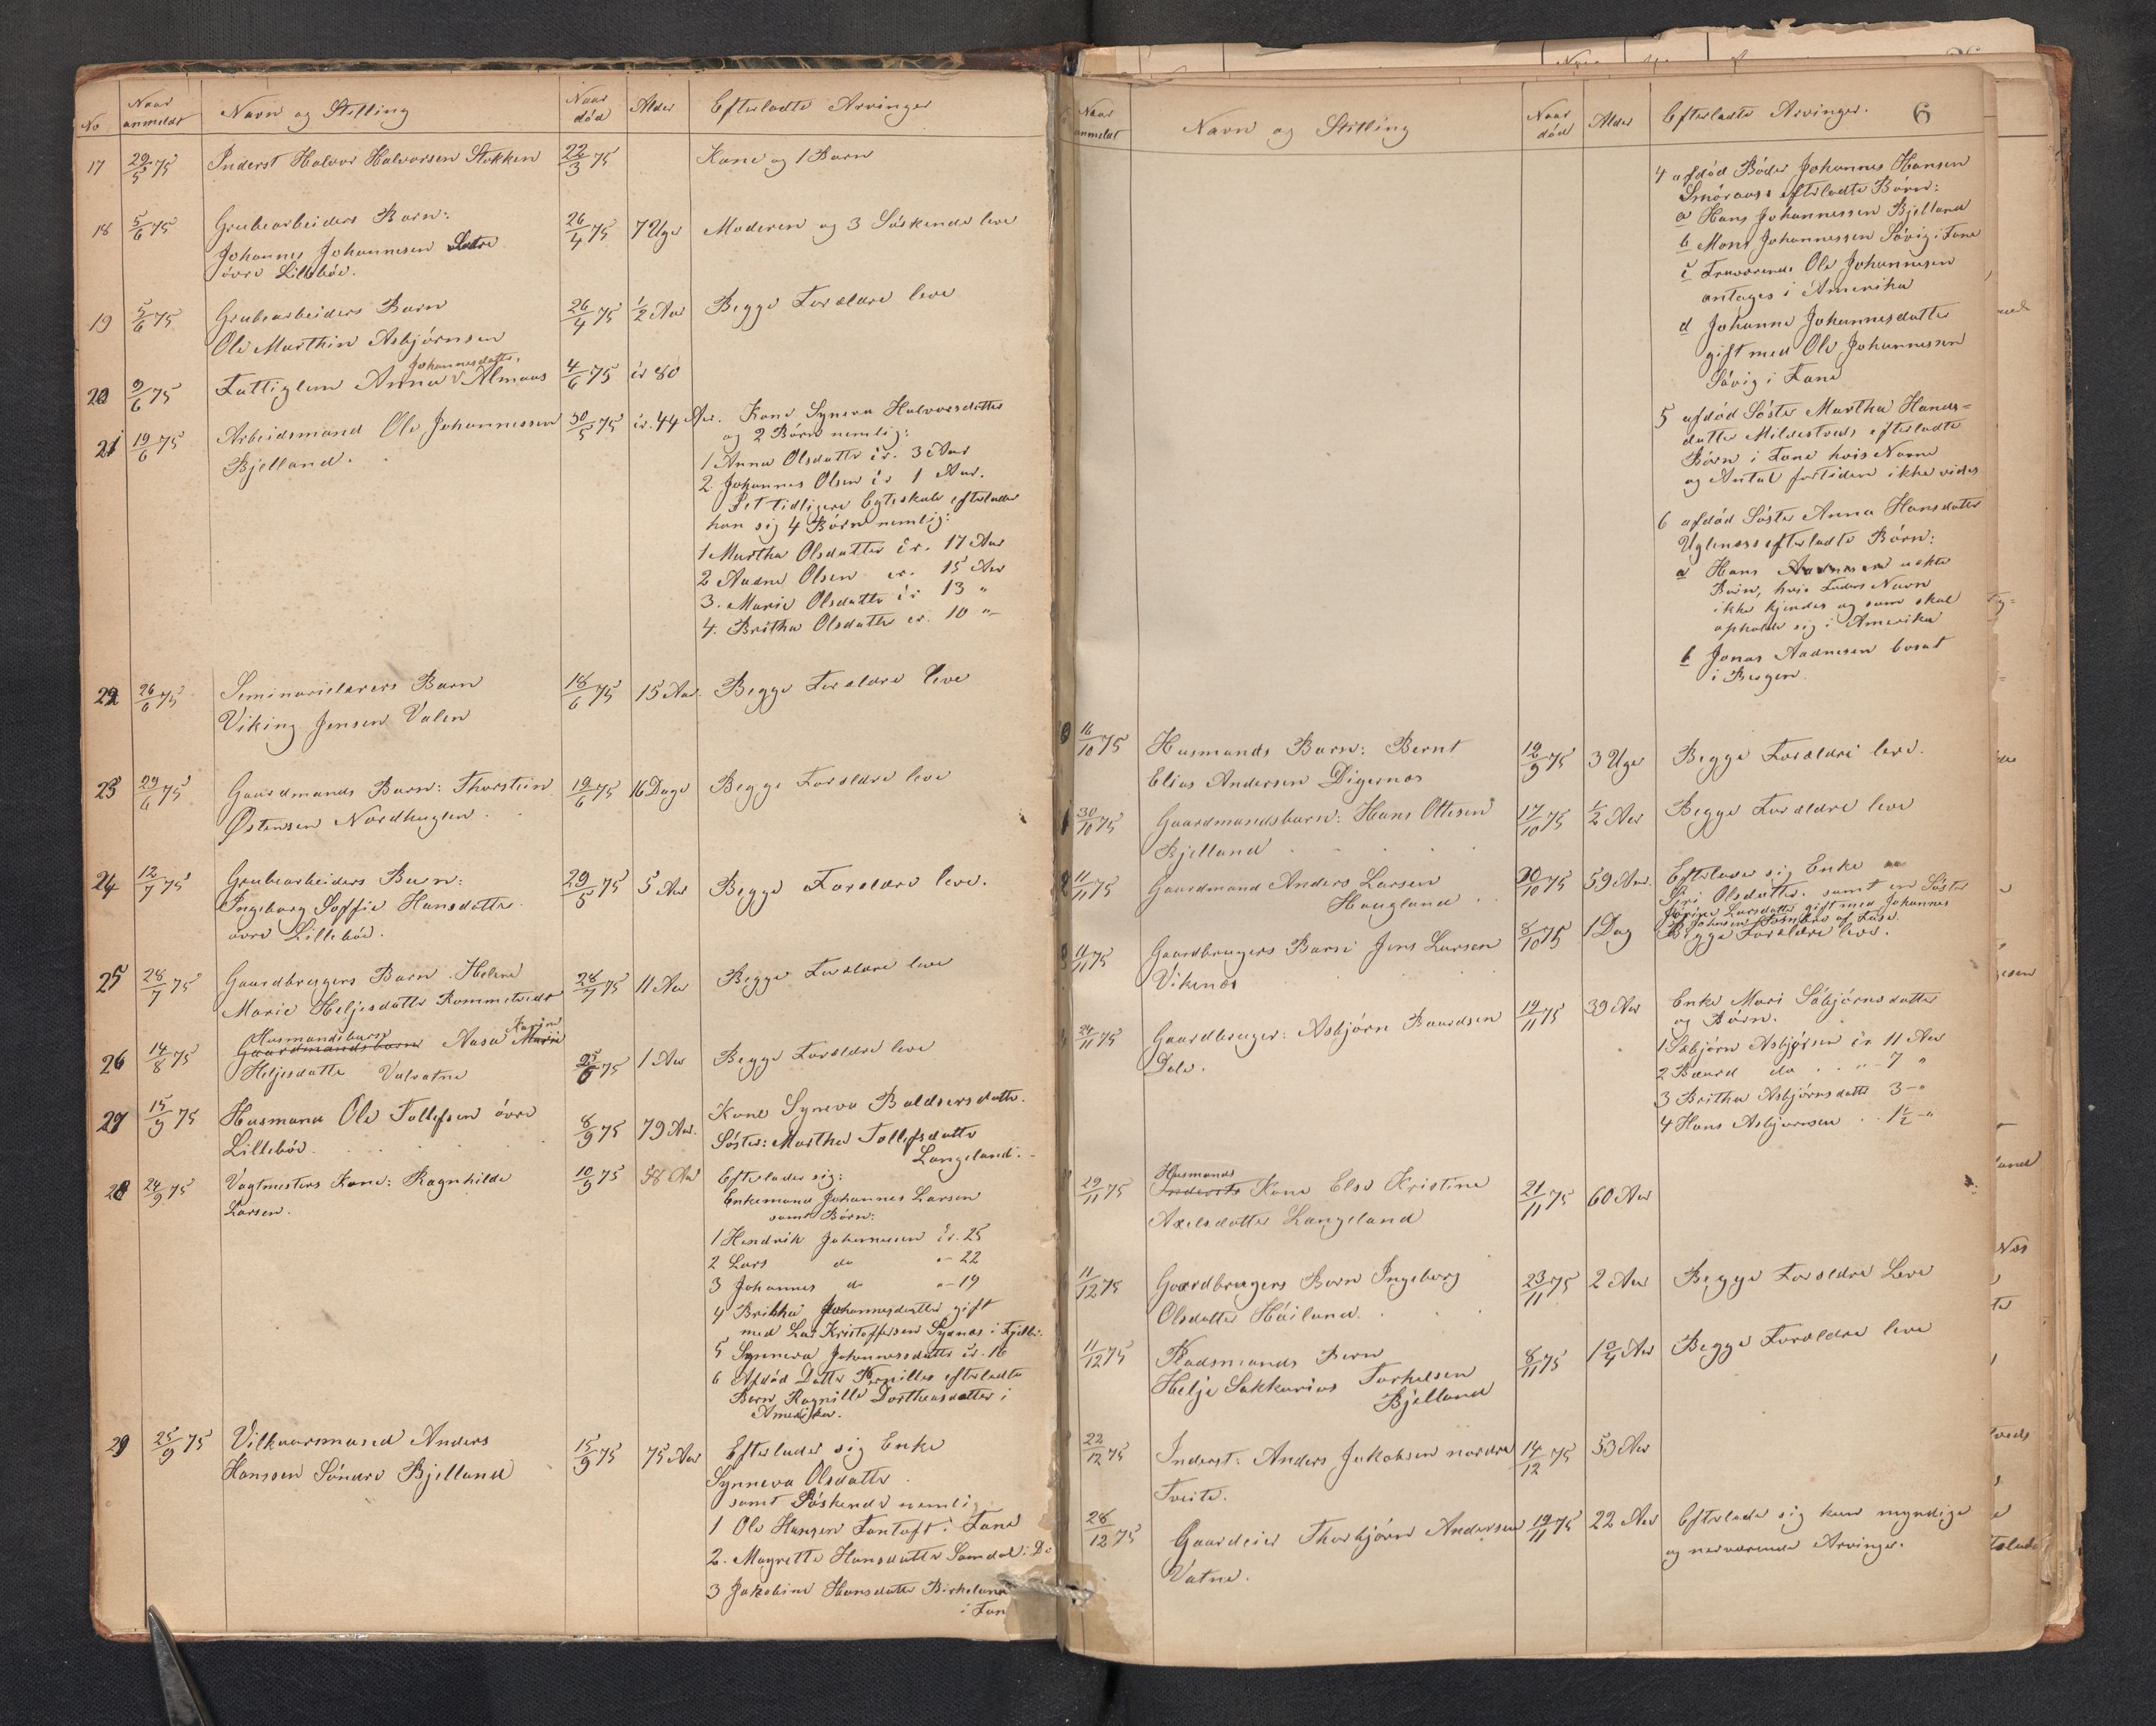 No Naar anmeldt Navn og Stilling Naar död Alder Efterladte Arvinger
17 29/5 75 Inderst Halvor Halvorsen Stokken 22/3 75 Kone og 1 Barn
18 5/6 75 Grubearbeiders Barn: 26/4 75 7 Uger Moderen og 3 Söskende leve
Johannes Johannesen Sætre
övre Lillebö.
19 5/6 75 Grubearbeiders Barn 26/4 75 1/2 Aar Begge Forældre leve
Ole Marthin Asbjörnsen
Johannesdatter
20 9/6 75 Fattiglem Anna Almaas 4/6 75 ir 80
21 19/6 75 Arbeidsmand Ole Johannessen 30/5 75 ir. 44 Aar. Kone Synneva Halvorsdatter
Bjelland. og 2 Börn nemlig:
1 Anna Olsdatter ir. 3 Aar
2. Johannes Olsen ir 1 Aar.
I et tidligere Egteskab efterlader
han sig 4 Börn nemlig:
1 Martha Olsdatter ir. 17 Aar
2 Aadne Olsen ir. 15 Aar
3. Marie Olsdatter ir 13 "
4. Britha Olsdatter ir. 10 "
22 26/6 75 Seminarielærers Barn 18/6 75 15 Aar. Begge Forældre leve
Viking Jensen Valen
23 29/6 75 Gaardmands Barn: Thorstein 19/6 75 16 Dage Begge Forældre leve
Østensen Nordhuglen.
24 12/7 75 Grubearbeiders Barn: 29/5 75 5 Aar Begge Forældre leve.
Ingeborg Soffie Hansdatter
övre Lillebö.
25 28/7 75 Gaardbrugers Barn Helene 24/7 75 11 Aar Begge Forældre leve
Marie Heljesdatter Rommetvedt
Husmandsbarn Karine
26 14/8 75 Gaardmandsbarn Aasa Marie 75 1 Aar Begge Forældre leve
Heljesdatter Valvatne
27 15/9 75 Husmand Ole Tollefsen övre 8/9 75 79 Aar. Kone Syneva Baldsersdatter.
Lillebö. Söster: Martha Tollefsdatter
Langeland.
28 24/9 75 Vagtmesters Kone: Ragnhilde 10/9 75 58 Aar Efterlader sig:
Larsen. Enkemand Johannes Larsen
samt Börn:
1 Hendrik Johannesen ir. 25
2 Lars do "- 22
3 Johannes do "- 19
4 Brikka Johannesdatter gift
med Lar Kristoffersen Sydnæs i Fjelbe.
5 Synneva Johannesdatter ir. 16
6 Afdöd Datter Pernilles efterladte
Barn Ragnille Dortheasdatter i
Amerika.
29 25/9 75 Vilkaarsmand Anders 15/9 75 75 Aar Efterlader sig Enke
Hanssen Söndre Bjelland Synneva Olsdatter
samt Söskende nemlig
1 Ole Hansen Fantoft i Fane
2. Magrette Hansdatter Samdal i
3 Jakobine Hansdatter Birkeland
i Fan
Naar anmeldt Navn og Stilling Naar död Alder Efterladte Arvinger. 6
4 afdöd Broder Johannes Hansen
Smöraas efterladte Börn:
a Hans Johannessen Bjelland
b Mons Johannessen Sövig i Fane
c Fraværende Ole Johannesen
antages i Amerika
d Johanne Johannesdatter
gift med Ole Johannessen
Sövig i Fane
5 afdöd Söster Martha Hans=
datter Mildestveds efterladte
Börn i Fane hvis Navne
og Antal fortiden ikke vides
6 afdöd Söster Anna Hansdatter
Uglenæs efterladte Börn:
a Hans uekte
Barn, hvis Faders Navn
ikke kjendes og som skal
opholde sig i Amerika
b Jonas Aadnesen bosat
i Bergen.
16/10 75 Husmands Barn: Bernt 19/9 75 3 Uger Begge Forældre leve.
Elias Andersen Digernæs
30/10 75 Gaardmandsbarn: Hans Ottesen 17/10 75 1/2 Aar Begge Forældre leve
Bjelland
11/11 75 Gaardmand Anders Larsen 20/10 75 59 Aar. Efterlader sig Enke
Haugland Siri Olsdatter. samt en Söster
Larsdatter gift med Johannes
Johnsen af Fuse.
11/11 75 Gaardbrugers Barn: Jens Larsen 8/10 75 1 Dag Begge Forældre leve.
Vikenæs
24/11 75 Gaardbruger: Asbjörn Baardsen 19/11 75 39 Aar Enke Mari Sæbjörnsdatter
Dale. og Börn.
1 Sæbjörn Asbjörsen ir 11 Aar
2 Baard do " 7 "
3 Britha Asbjörnsdatter 3 - "
4 Hans Asbjörnsen 1 1/2 - "
Husmands
29/11 75 Inderst Kone Else Kristine 21/11 75 60 Aar
Axelsdatter Langeland
11/12 75 Gaardbrugers Barn Ingeborg 23/11 75 2 Aar Begge Forældre Leve
Olsdatter Höiland.
11/12 75 Pladsmands Barn 8/11 75 1 3/4 Aar Begge Forældre leve
Helje Sakkarias Torkelsen
Bjelland
22/12 75 Inderst: Anders Jakobsen nordre 14/12 75 53 Aar
Tveite.
28/12 75 Gaardeier Thorbjörn Andersen 19/11 75 22 Aar Efterlader sig kun myndige
Vatne. og nerværende Arvinger.